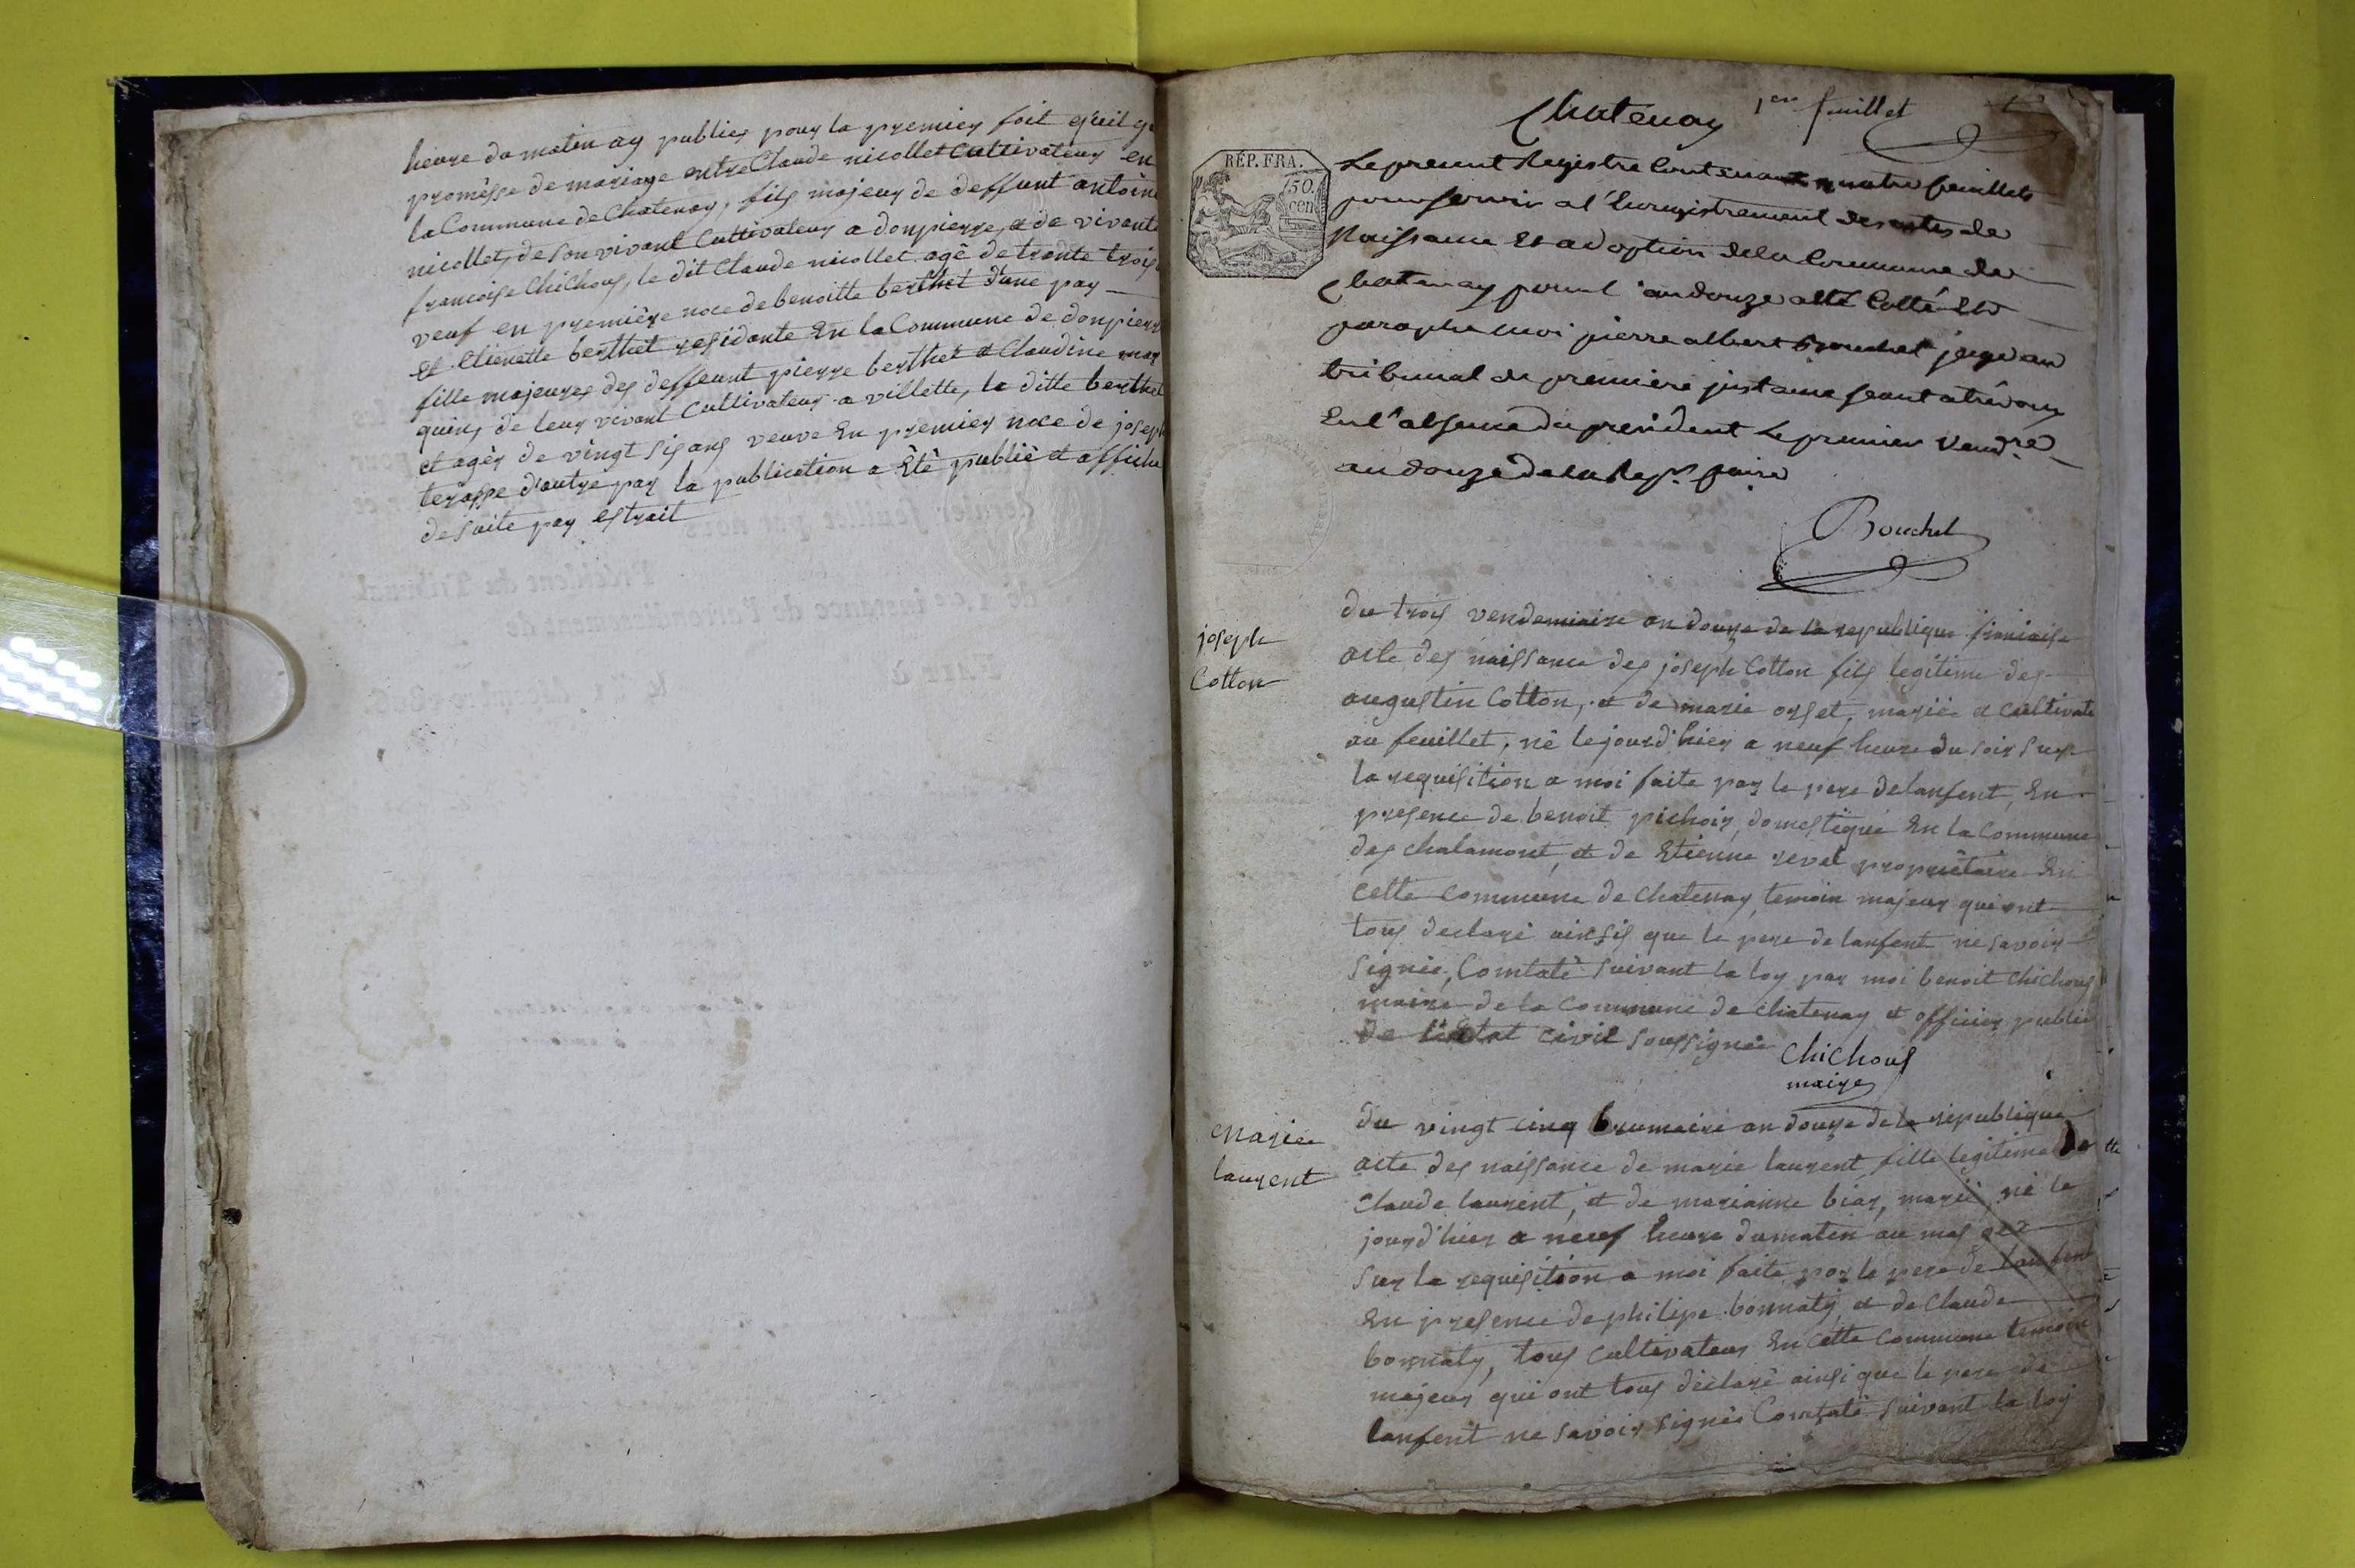 heure du matin ay publier pour la premier foit qu'il y
promèsse de mariage entre Claude nicollet Cultivateur en
la Commune de Chatenay, fils majeur de deffunt antoine
nicollet, de son vivant Cultivateur a donpierre, et de vivante
francoise Chichoux, le dit Claude nicollet agé de trante trois
veuf en première noce de benoitte berthet d'une par
et Etienette berthet residante En la Commune de donpierre
fille majeure des deffeunt pierre berthet et Claudine mar
quin, de leur vivant Cultivateur a villette, la ditte berthet
et agér de vingt sis ans veuve En premier noce de joseph
terasse d'autre par la publication a Eté publié et affiche
de suite par estrait
Chatenay 1er feuillet
RÉP. FRA.
50.
cen
Le present Registre Contenant quatre feuillets
pour servir a l'Enregistrement des actes de
Naissance Et adoption de la Commune de
Chatenay pour l'an douze a été Cotté Et
paraphe moi pierre albert Bouchet juge au
tribunal de premiere instance seant a trevoux
En l'absence du president Le premier Vend.re
an douze de la Rep.
Bouchet
joseph
Cotton
du trois vendemiaire an douze de la republique francaise
acte des naissance des joseph Cotton fils legitime des
augustin Cotton, et de marie orset, mariée et Cultivate
au feuillet, né le jourd'hier a neuf heure du soir sur
la requisition a moi faite par le pere de lanfent, En
presence de benoit pichoir, domestique En la Commune
des chalamont, et de Etienne revel propriétaire En
cette Commune de Chatenay, temoin majeur qui ont
tous declaré ainsis que le pere de lanfent ne savoir
signée, Comtaté suivant la loy par moi benoit Chichoux
maire de la Commune de Chatenay et officier public
de l'Etat civil soussignée
Chichoux
maire
Marie
laurent
du vingt cinq brumaire an douze de la republique
acte des naissance de marie laurent fille legitime de
Claude laurent, et de marianne biar, marié né le
jourd'hier a neuf heure du matin au mas
sur la requisition a moi faite par le pere de lanfent
En presence de philipe bonnaty, et de Claude
bonnaty, tous Cultivateur En cette Commune temoin
majeur qui ont tous déclaré ainsi que le pere de
lanfent ne savoir signée Comtaté suivant la loy